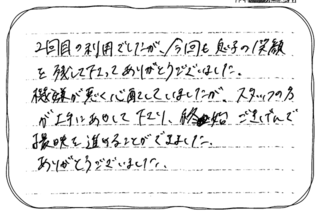 2回目の利用でしたが、今回も息子の笑顔
を残して下さってありがとうございました。
機嫌が悪く心配していましたが、スタッフの方
が上手にあやして下さり、終始ごきげんで
撮影を進めることができました。
ありがとうございました。